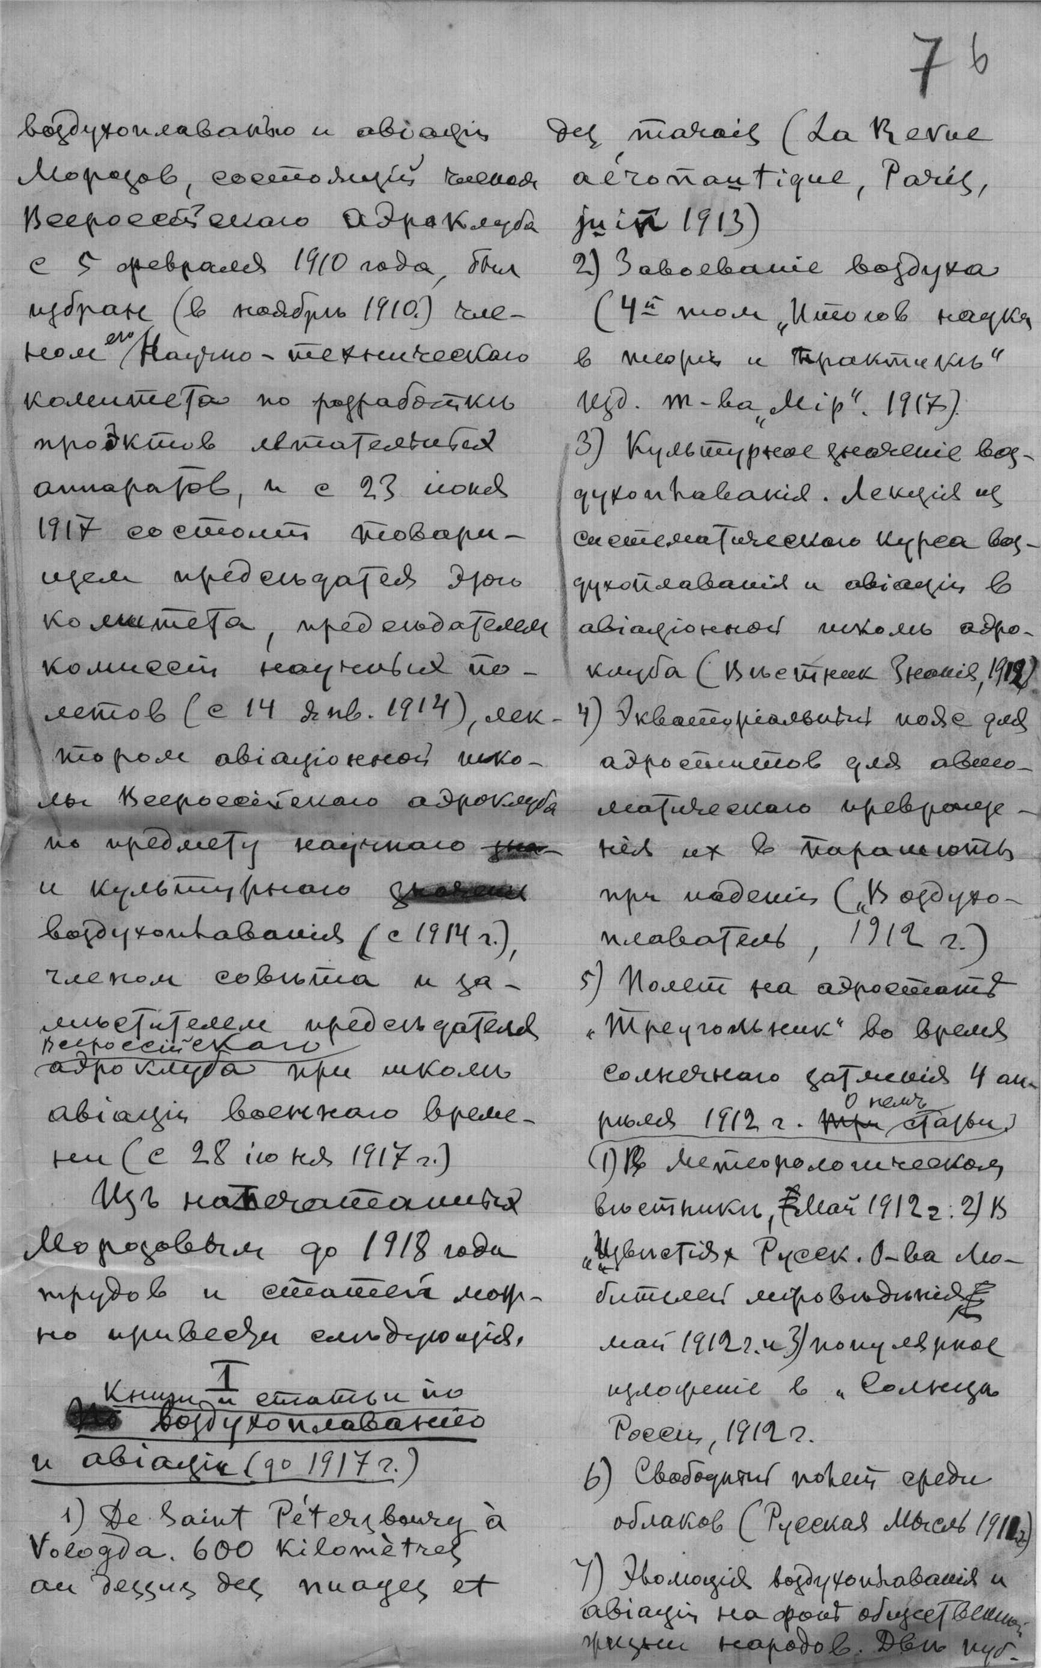 7 6
воздухоплаванію и авіаціи
Морозов, состоящій членом
Всероссійскаго Аэроклуба
с 5 февраля 1910 года, был
избран (в ноябрѣ 1910.) чле-
ном его Научно-техническаго
комитета по разработкѣ
проэктов летательных
аппаратов, и с 23 іюня
1917 состоит товари-
щем предсѣдателя этого
комитета, предсѣдателем
комиссіи научных по-
летов (с 14 янв. 1914), лек-
тором авіаціонной шко-
лы Всероссійскаго аэроклуба
по предмету научнаго
и культурнаго значенія
воздухоплаванія (с 1914 г.),
членом совѣта и за-
мѣстителем предсѣдателя
Всероссійскаго
аэроклуба при школѣ
авіаціи военнаго време-
ни (с 28 іюня 1917 г.)
Изъ напечатанных
Морозовым до 1918 года
трудов и статей мож-
но привести слѣдующія.
I
Книги и статьи по
воздухоплаванію
и авіаціи (до 1917 г.)
1) De Saint Pétersbourg à
Vologda. 600 kilomètres
au dessus des nuages et
des marais (La Revue
aéronautique, Paris,
juin 1913)
2) Завоеваніе воздуха
(4й том „Итогов науки
в теоріи и практикѣ"
изд. т-ва „Мір". 1917).
3) Культурное значеніе воз-
духоплаванія. Лекція из
систематическаго курса воз-
духоплаванія и авіаціи в
авіаціонной школѣ аэро-
клуба (Вѣстник Знанія, 1912)
4) Экваторіальный пояс для
аэростатов для авто-
матическаго превраще-
нія их в парашюты
при паденіи („Воздухо-
плаватель, 1912 г.)
5) Полет на аэростатѣ
„Треугольник" во время
солнечнаго затменія 4 ап-
рѣля 1912 г. три О немъ статьи:
(1) В Метеорологическом
вѣстникѣ, Май 1912 г. 2) В
„Извѣстіях Русск. О-ва Лю-
бителей міровѣдѣнія
май 1912 г. и 3) популярное
изложеніе в „Солнцѣ
Россіи, 1912 г.
6) Свободный полет среди
облаков (Русская Мысль
7) Эволюція воздухоплаванія и
авіаціи на фонѣ общественной
жизни народов. Двѣ пуб-